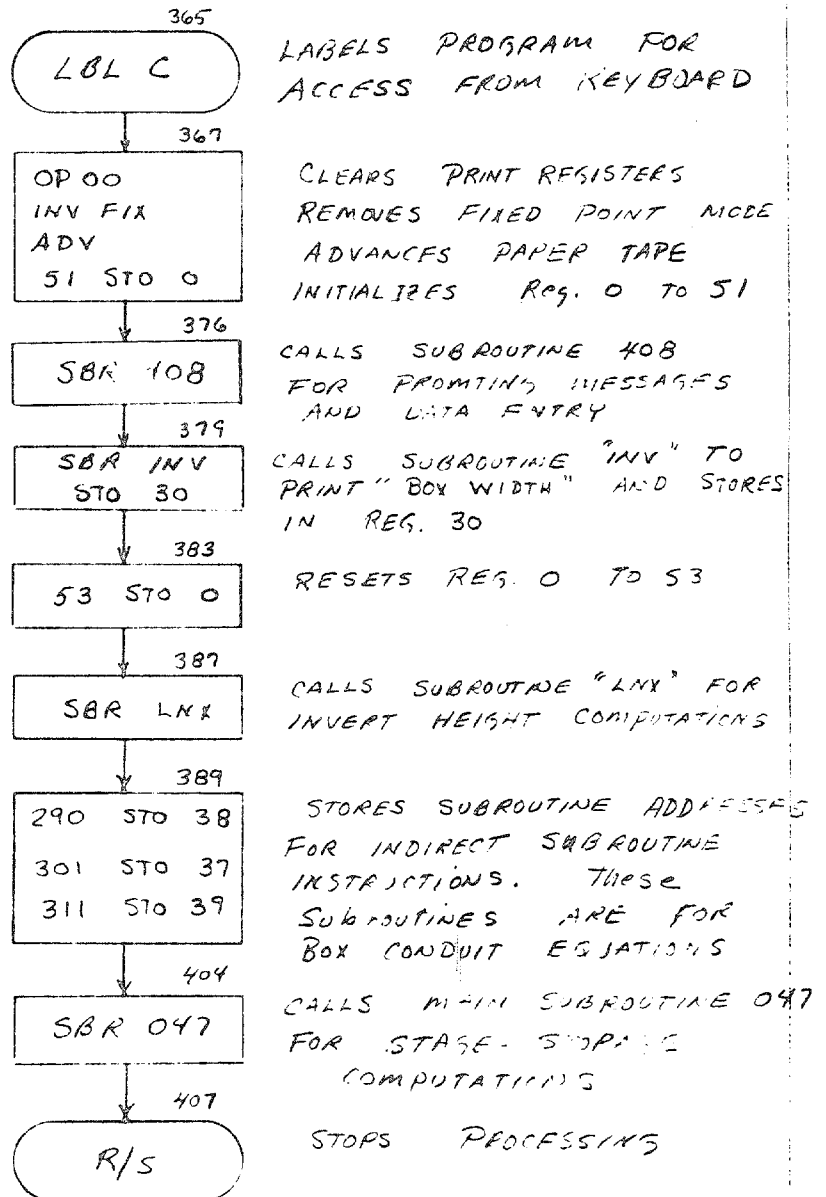 365
LBL C
LABELS PROGRAM FOR
ACCESS FROM KEYBOARD
367
OP 00
INV FIX
ADV
51 STO 0
CLEARS PRINT REGISTERS
REMOVES FIXED POINT MODE
ADVANCES PAPER TAPE
INITIALIZES Reg. 0 TO 51
376
SBR 408
CALLS SUBROUTINE 408
FOR PROMTING MESSAGES
AND DATA ENTRY
379
SBR INV
STO 30
CALLS SUBROUTINE "INV" TO
PRINT "BOX WIDTH" AND STORES
IN REG. 30
383
53 STO 0
RESETS REG. 0 TO 53
387
SBR LNX
CALLS SUBROUTINE "LNX" FOR
INVERT HEIGHT COMPUTATIONS
389
290 STO 38
301 STO 37
311 STO 39
STORES SUBROUTINE ADDRESSES
FOR INDIRECT SUBROUTINE
INSTRUCTIONS. These
Subroutines ARE FOR
BOX CONDUIT EQUATIONS
404
SBR 047
CALLS MAIN SUBROUTINE 047
FOR STAGE-STORAGE
COMPUTATIONS
407
R/S
STOPS PROCESSING